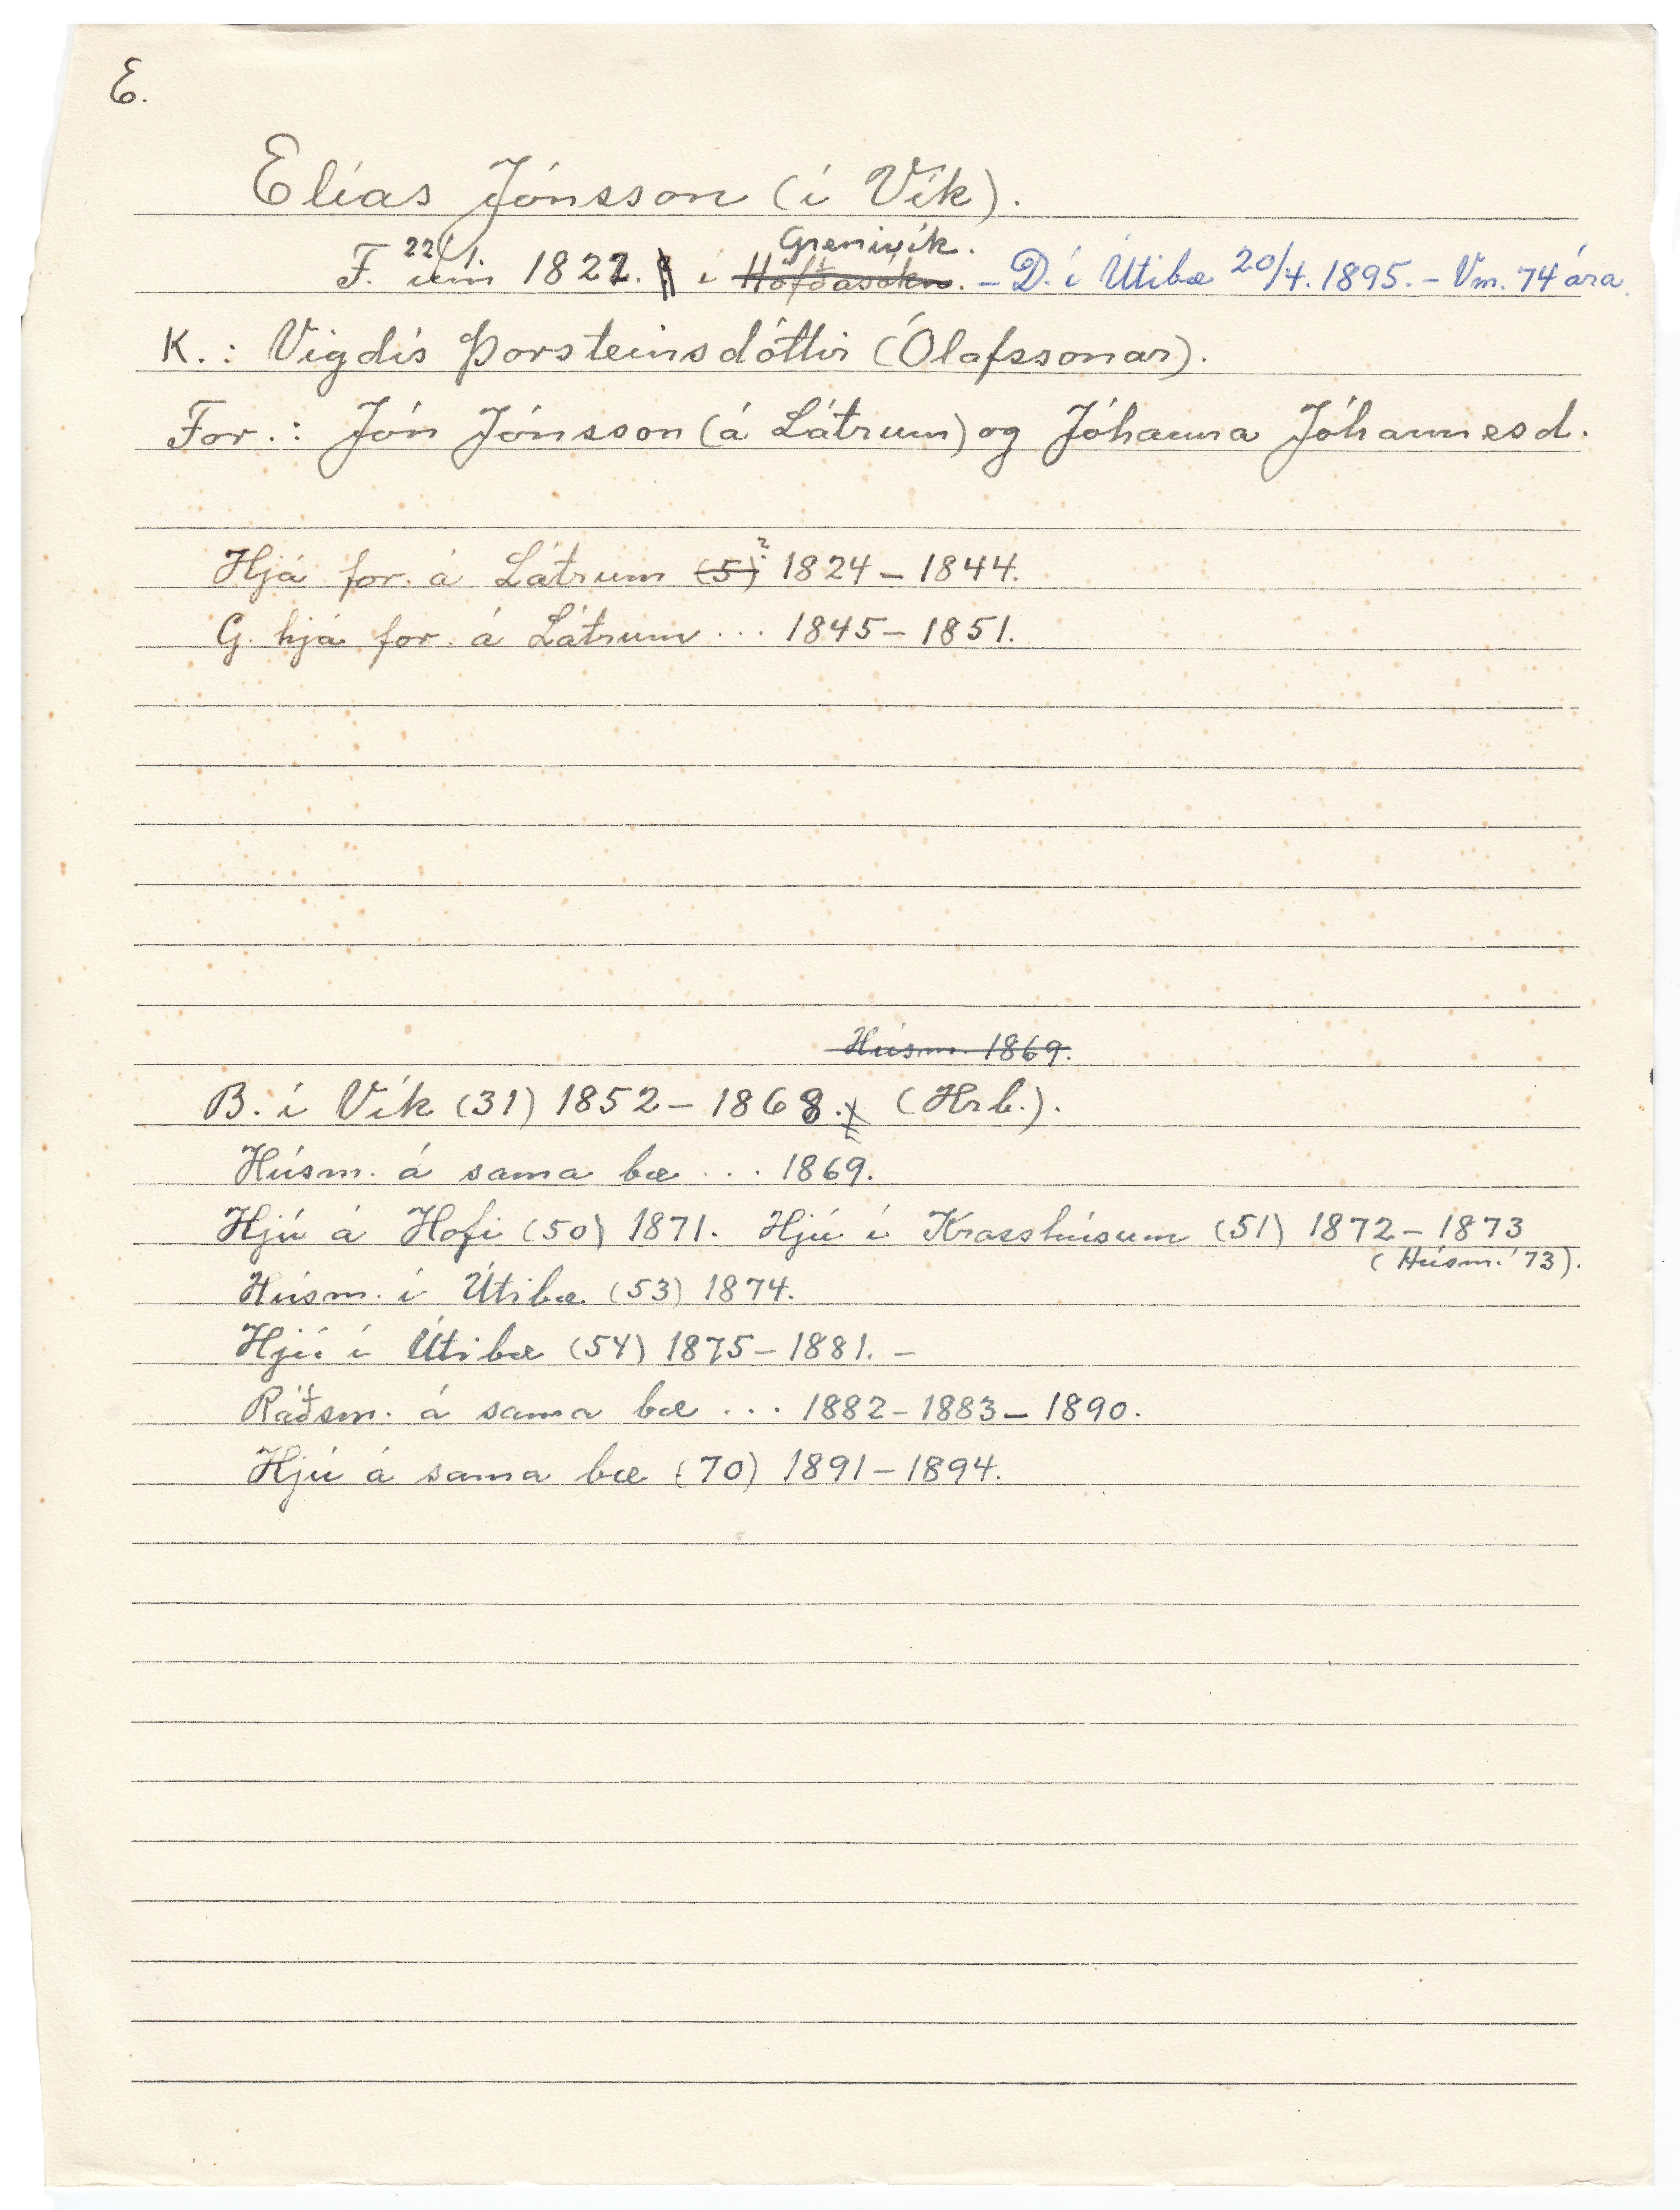 E.
Elías Jónsson (í Vík).
22/1. Grenivík.
F. um 1822. í Höfðasókn. – D. í Útibæ 20/4. 1895. – Vm. 74 ára.
K.: Vigdís Þorsteinsdóttir (Ólafssonar).
For.: Jón Jónsson (á Látrum) og Jóhanna Jóhannesd.
Hjá for. á Látrum (5)? 1824 – 1844.
G. hjá for. á Látrum ... 1845 – 1851.
Húsm. 1869.
B. í Vík (31) 1852 – 1868. (Hrb.).
Húsm. á sama bæ ... 1869.
Hjú á Hofi (50) 1871. Hjú í Krosshúsum (51) 1872 – 1873
(Húsm. '73).
Húsm. í Útibæ (53) 1874.
Hjú í Útibæ (54) 1875 – 1881. –
Ráðsm. á sama bæ ... 1882 – 1883 – 1890.
Hjú á sama bæ (70) 1891 – 1894.